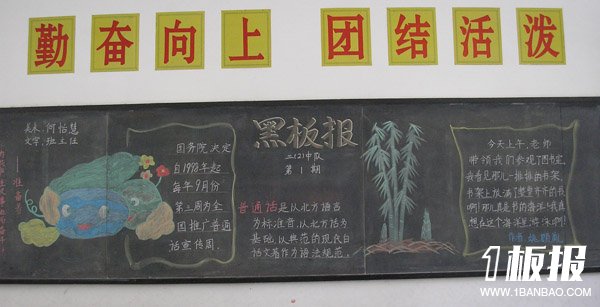 勤奋向上 团结活泼
美术:何怡慧
文字:班主任
国务院决定
自1998年起
每年9月份
第三周为全
国推广普通
话宣传周.
黑板报
二(2)中队
第1期
普通话是以北方语言
为标准音,以北方话为
基础,以典范的现代白
话文著作为语法规范.
今天上午,老师
带领我们参观了图书室.
我看见那儿一排排的书架,
书架上放满了整整齐齐的书
啊!那儿真是书的海洋!我真
想在这个海洋里游泳啊!
1板报
WWW.1BANBAO.COM